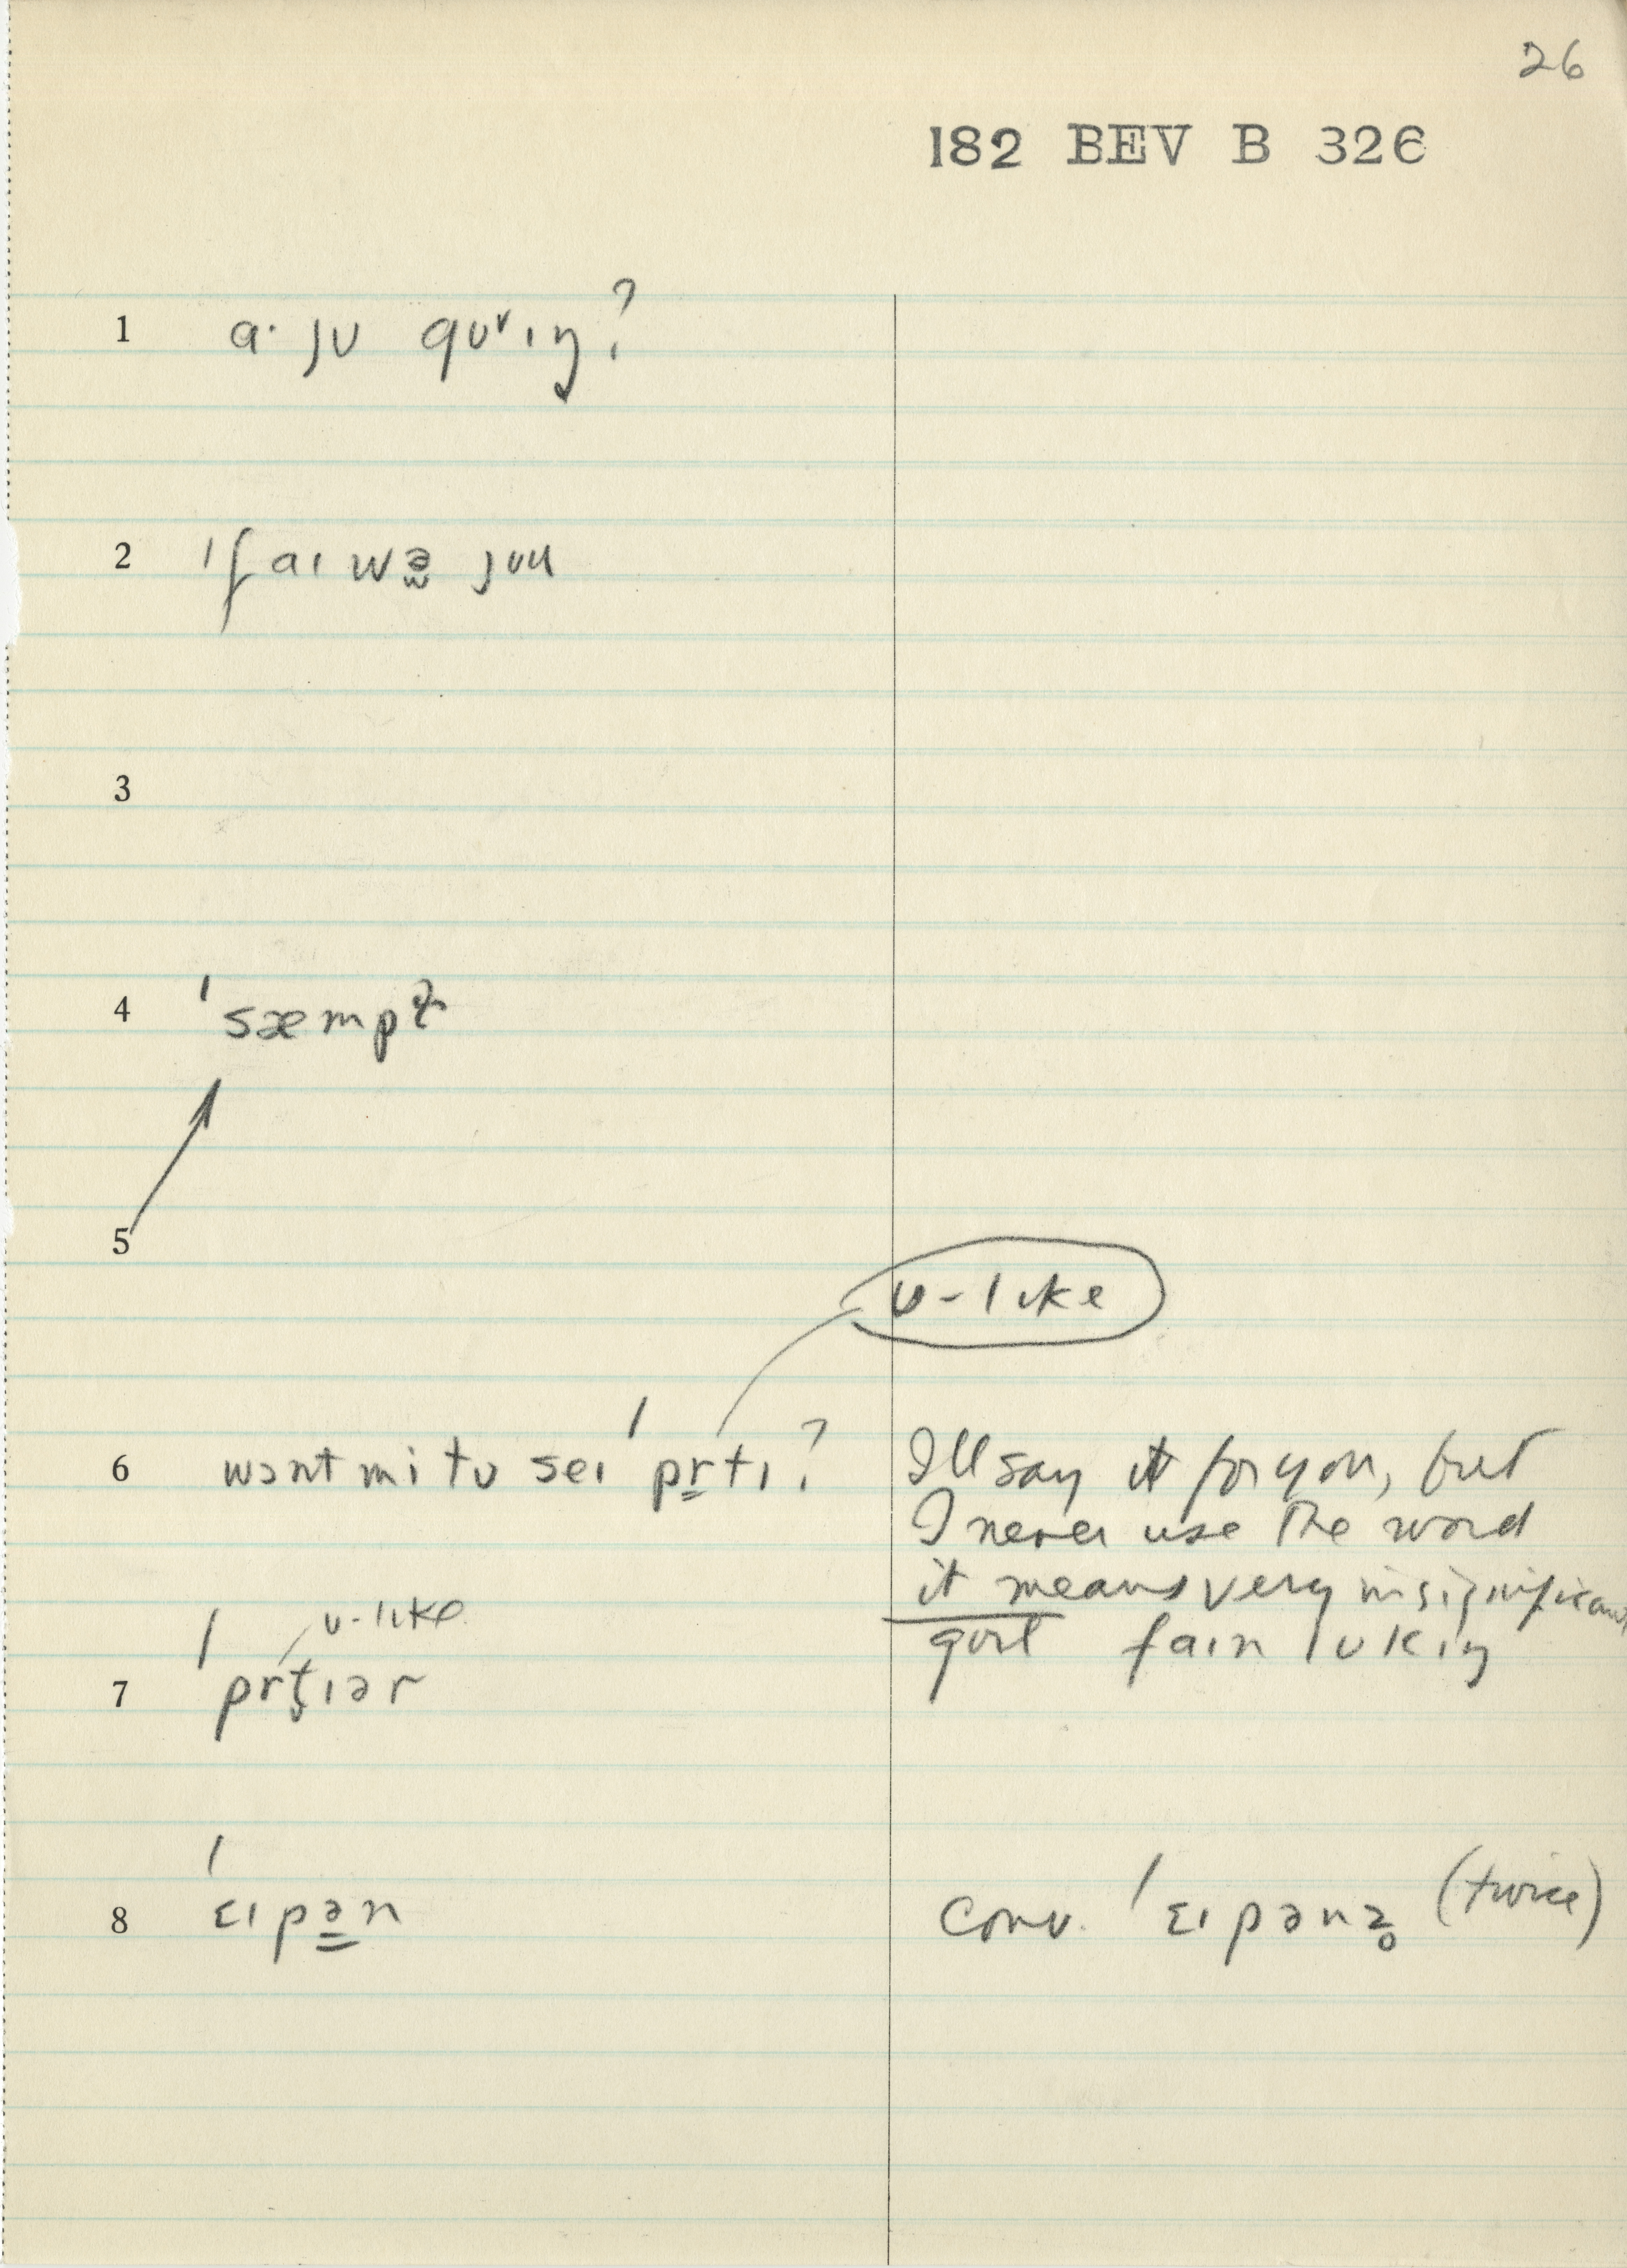 26
182 BEV B 326
1 a· ju gʊᵛɪŋ?
2 ɪf aɪ wə̰ jʊu
3
4 'sæmpɫ
5
ʊ-like
6 wɔnt mi tʊ seɪ 'pr̳tɪ? I'll say it for you, but
I never use the word
it means very insignificant
ʊ-like gɜɪl faɪn lʊkɪŋ
7 'prt̬ɪər
8 'ɛɪpə̳n conv. 'ɛɪpənz̥ (twice)